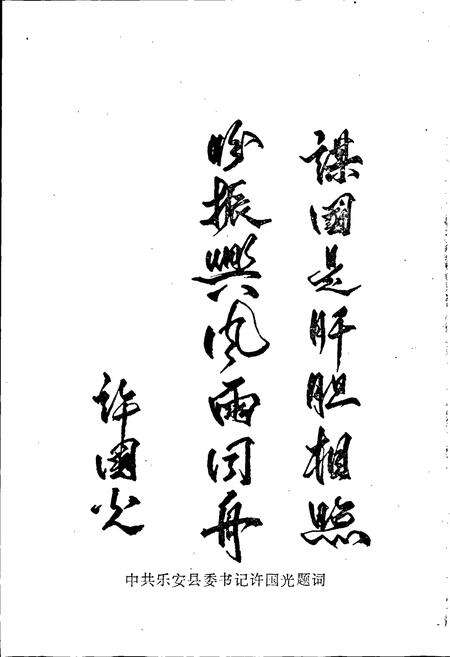 謀國是肝胆相照
盼振興风雨同舟
许國光
中共乐安县委书记许国光题词